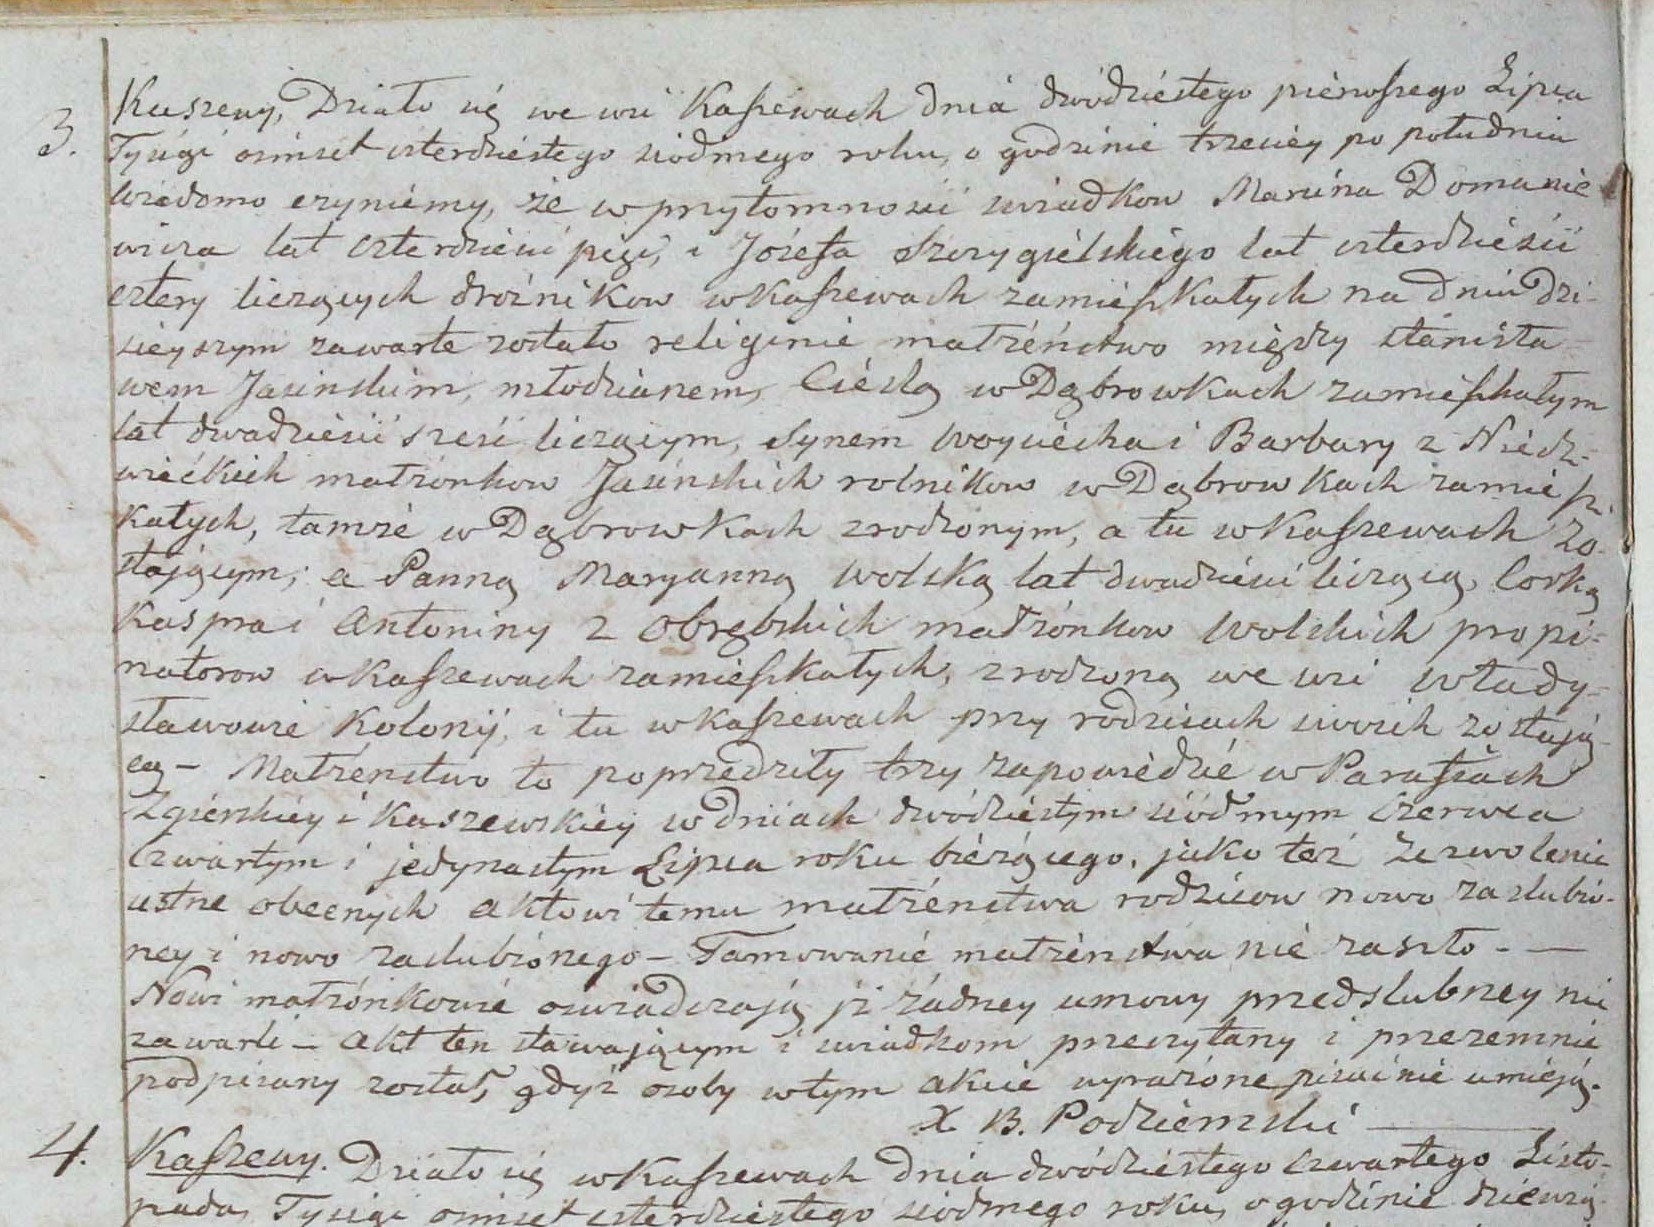 3. Kaszewy, Działo się we wsi Kaszewach dnia dwódziéstego piérwszego Lipca
Tysiąć ośmset czterdziéstego siódmego roku, o godzinié trzeciéy po południu
Wiadomo czyniémy, że w przytomności świadkow Marcina Domanie
wicza lat czterdzieści pięć, i Józefa Szczygiélskiégo lat czterdzieści
cztery liczących drożnikow w Kaszewach zamieszkałych na dniu dzi-
sieyszym zawarte zostało religijnié małżéństwo między Stanisła-
wem Jasinskim, młodzianem, Cieślą w Dąbrowkach zamieszkałym
lat dwadzieścii sześć liczącym, Synem Woyciécha i Barbary z Niedz-
wiéckich małżonkow Jasinskich rolnikow w Dąbrowkach zamiesz-
kałych, tamże w Dąbrowkach zrodzonym, a tu w Kaszewach zo-
stającym; a Panną Maryanną Wolską lat dwadzieści liczącą, Corką
Kaspra i Antoniny z Obrębskich małżonkow Wolskich propi-
natorow w Kaszewach zamieszkałych, zrodzoną we wsi Włady-
sławowie Kolonij, i tu w Kaszewach przy rodzicach swoich zostają-
cą – Małżenstwo to poprzedziły trzy zapowiédzié w Parafiach
Zgiérskiéy i Kaszewskiéy w dniach dwódziestym siódmym Czerwca
Czwartym i jedynastym Lipca roku biéżącego, jako też zezwolenie
ustne obecnych aktowi temu małżénstwa rodzicow nowo zaslubio-
ney i nowo zaslubionego – Tamowanié małżénstwa nié zaszło - —
Nowi małżónkowié oswiadczają ji żadney umowy przedslubney nie
zawarli – Akt ten stawającym i swiadkom przeczytany i przezemnie
podpisany został, gdyż osoby w tym akcie wyrażone pisać nie umieją.
X B. Podziemski
4. Kaszewy. Działo się w Kaszewach dnia dwódziestego czwartego Listo-
pada, Tysiąć ośmset czterdziestego siodmego roku, o godzinie dziewią-